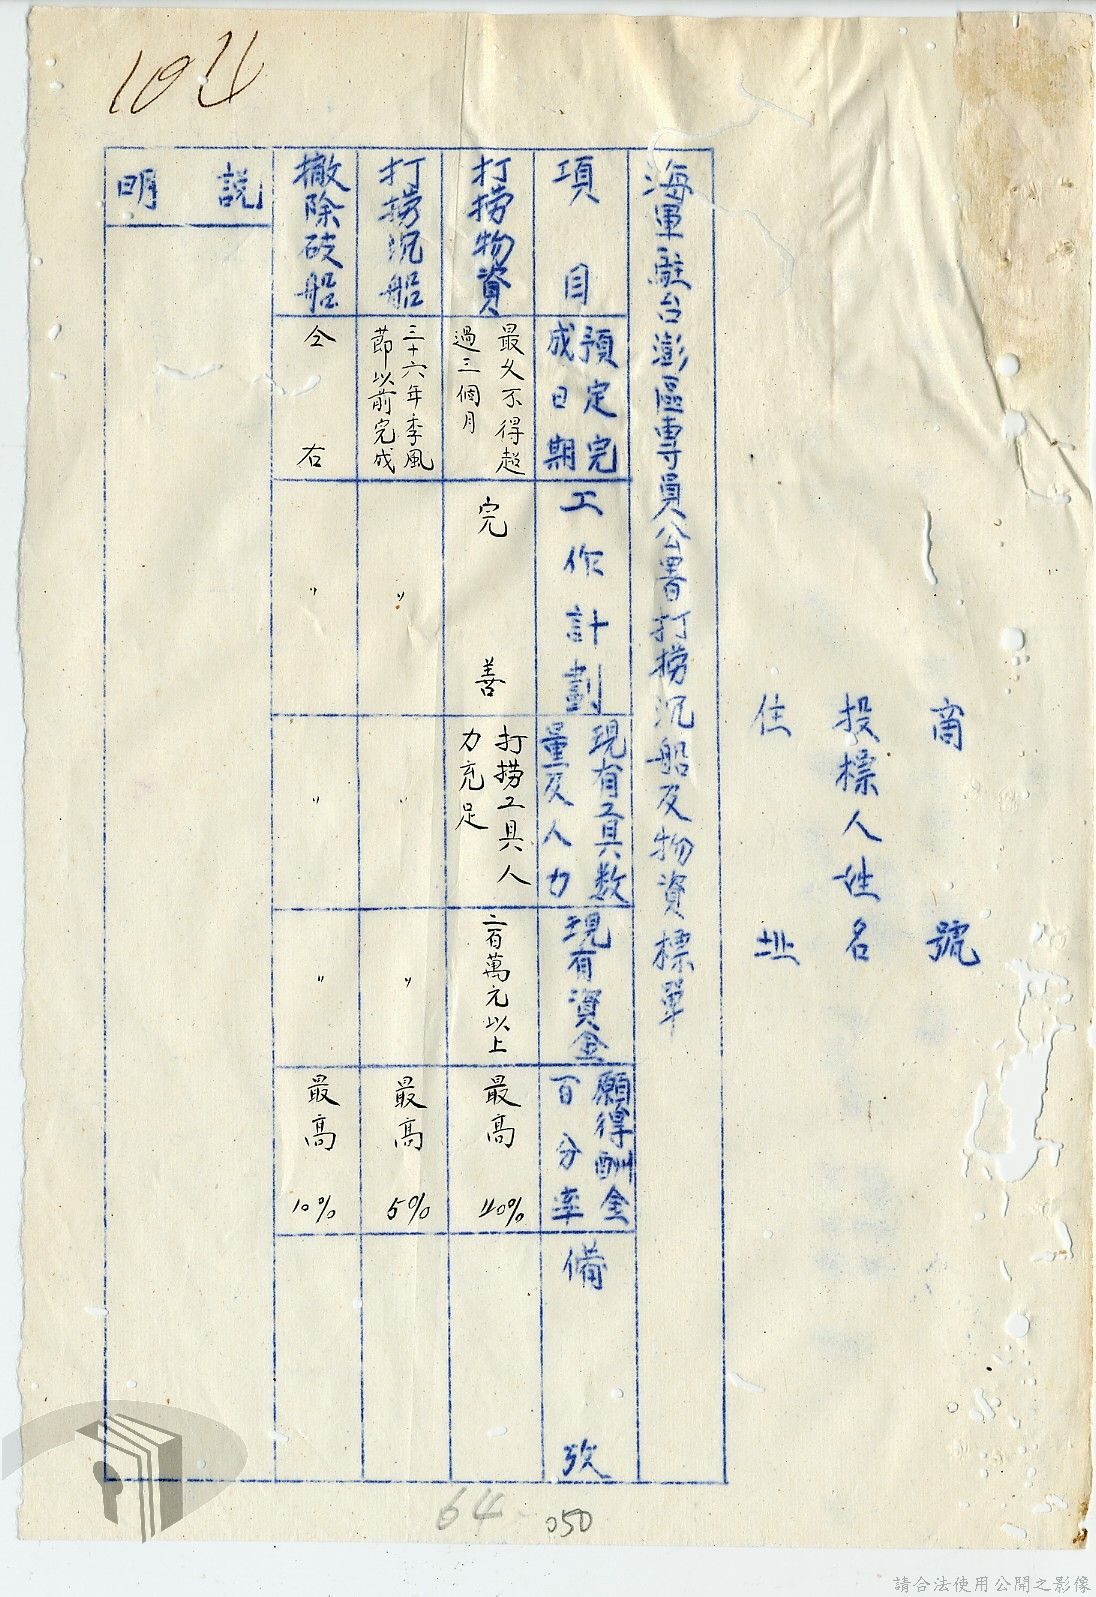 104
商號
投標人姓名
住址
海軍駐台澎區專員公署打撈沉船及物資標單
項目
預定完
成日期
工作計劃
現有工具數
量及人力
現有資金
願得酬金
百分率
備攷
打撈物資
最久不得超
過三個月
完善
打撈工具人
力充足
二百萬元以上
最高 40%
打撈沉船
三十六年季風
節以前完成
〃
〃
〃
最高 5%
撤除破船
仝右
〃
〃
〃
最高 10%
說明
64
050
請合法使用公開之影像